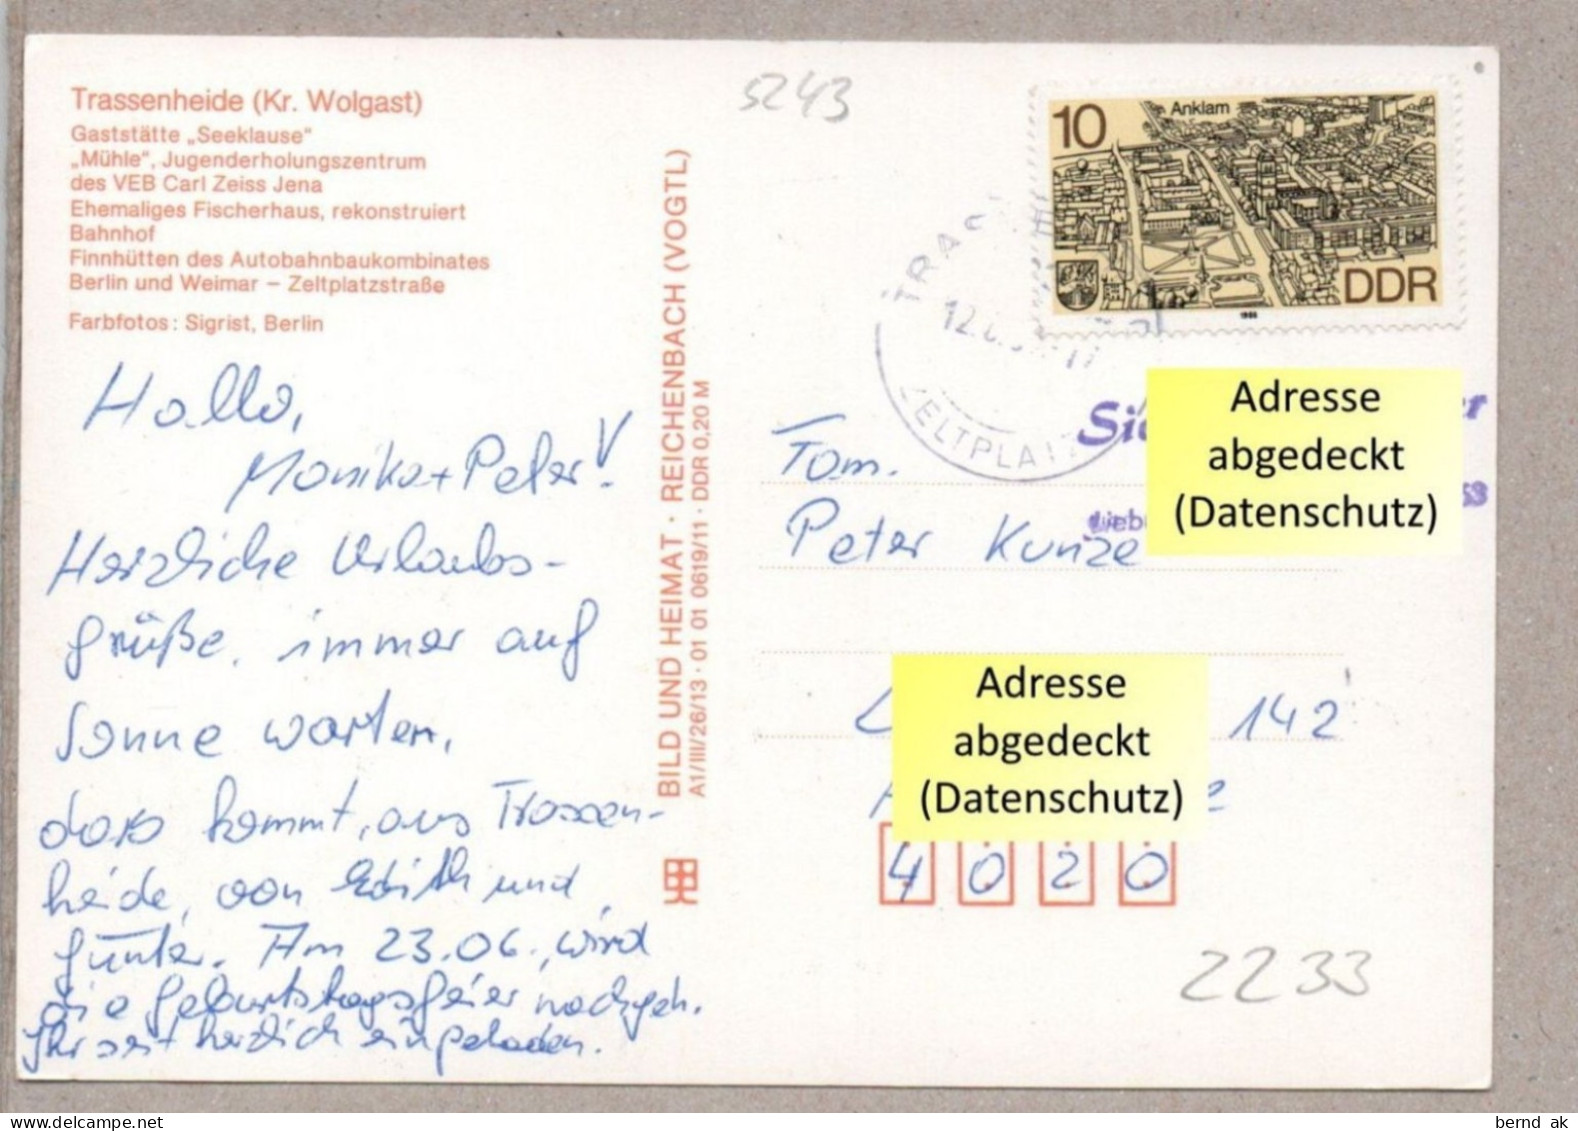 Trassenheide (Kr. Wolgast)
Gaststätte „Seeklause“
„Mühle“, Jugenderholungszentrum
des VEB Carl Zeiss Jena
Ehemaliges Fischerhaus, rekonstruiert
Bahnhof
Finnhütten des Autobahnbaukombinates
Berlin und Weimar – Zeltplatzstraße
Farbfotos: Sigrist, Berlin
Hallo,
Monika + Peter!
Herzliche Urlaubs-
grüße, immer auf
Sonne warten,
dass kommt, aus Trassen-
heide, von Edith und
Günter. Am 23.06., wird
die Geburtstagsfeier nachgeh.
Ihr seit herzlich eingeladen.
BILD UND HEIMAT · REICHENBACH (VOGTL)
A1/III/26/13 · 01 01 0619/11 · DDR 0,20 M
5243
10
Anklam
DDR
1988
TRAS
12.
ZELTPLATZ
Adresse
abgedeckt
(Datenschutz)
Fam.
Peter Kunze
Adresse
abgedeckt
(Datenschutz)
142
4020
2233
bernd ak